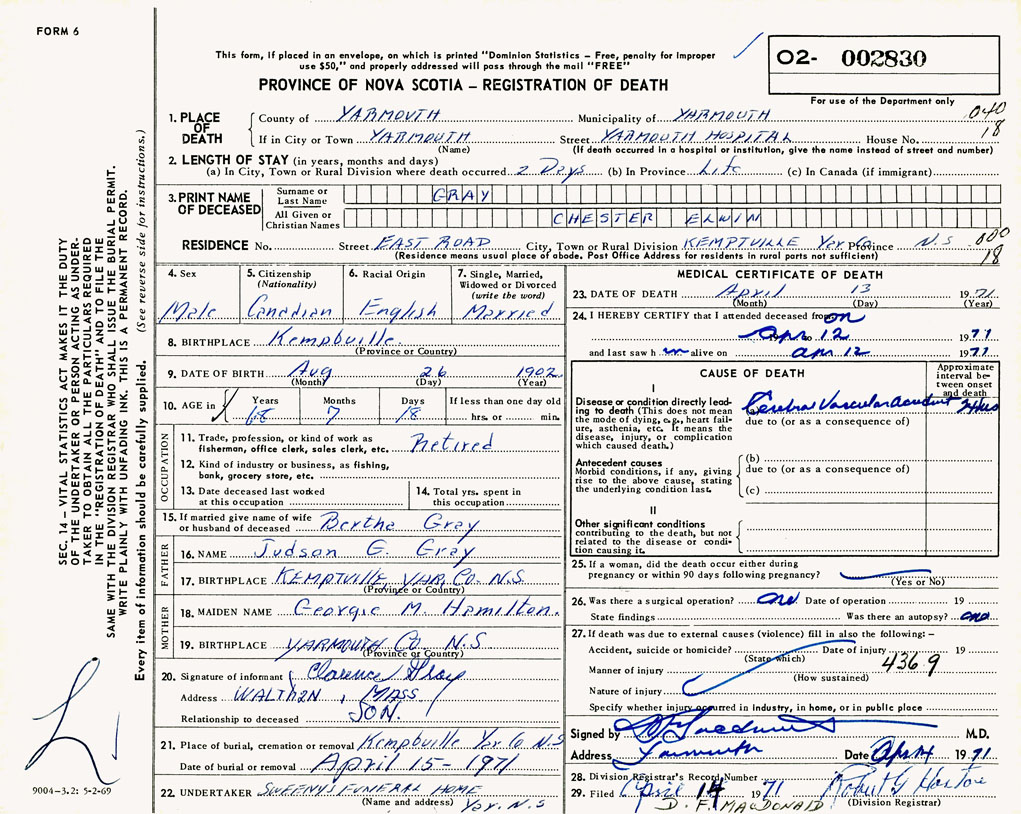 FORM 6
This form, if placed in an envelope, on which is printed "Dominion Statistics – Free, penalty for improper
use $50," and properly addressed will pass through the mail "FREE"
PROVINCE OF NOVA SCOTIA – REGISTRATION OF DEATH
O2- 002830
For use of the Department only
1. PLACE OF DEATH
County of YARMOUTH Municipality of YARMOUTH 040
If in City or Town YARMOUTH Street YARMOUTH HOSPITAL House No. 18
(Name) (If death occurred in a hospital or institution, give the name instead of street and number)
2. LENGTH OF STAY (in years, months and days)
(a) In City, Town or Rural Division where death occurred 2 Days (b) In Province Life (c) In Canada (if immigrant)
3. PRINT NAME OF DECEASED
Surname or Last Name GRAY
All Given or Christian Names CHESTER ELWIN
RESIDENCE No. Street EAST ROAD City, Town or Rural Division KEMPTVILLE Yar Co Province N.S 000
(Residence means usual place of abode. Post Office Address for residents in rural parts not sufficient) 18
4. Sex
Male
5. Citizenship
(Nationality)
Canadian
6. Racial Origin
English
7. Single, Married,
Widowed or Divorced
(write the word)
Married
8. BIRTHPLACE Kemptville
(Province or Country)
9. DATE OF BIRTH Aug 26 1902
(Month) (Day) (Year)
10. AGE in Years Months Days If less than one day old
68 7 18 hrs. or min.
OCCUPATION
11. Trade, profession, or kind of work as
fisherman, office clerk, sales clerk, etc. Retired
12. Kind of industry or business, as fishing,
bank, grocery store, etc.
13. Date deceased last worked
at this occupation
14. Total yrs. spent in
this occupation
15. If married give name of wife
or husband of deceased Bertha Gray
FATHER
16. NAME Judson G. Gray
17. BIRTHPLACE KEMPTVILLE YAR. CO. N.S
(Province or Country)
MOTHER
18. MAIDEN NAME Georgie M Hamilton.
19. BIRTHPLACE YARMOUTH Co N.S
(Province or Country)
20. Signature of informant Clarence Gray
Address WALTHAN, MASS
Relationship to deceased SON.
21. Place of burial, cremation or removal Kemptville Yar Co N.S
Date of burial or removal April 15 - 1971
22. UNDERTAKER SWEENY'S FUNERAL HOME
(Name and address) Yar. N.S
MEDICAL CERTIFICATE OF DEATH
23. DATE OF DEATH April 13 1971
(Month) (Day) (Year)
24. I HEREBY CERTIFY that I attended deceased from on
apr 12 to 1971
and last saw h im alive on apr 12 1971
CAUSE OF DEATH
Approximate
interval be-
tween onset
and death
I
Disease or condition directly lead-
ing to death (This does not mean
the mode of dying, e.g., heart fail-
ure, asthenia, etc. It means the
disease, injury, or complication
which caused death.)
(a) Cerebral Vascular accident
due to (or as a consequence of)
Antecedent causes
Morbid conditions, if any, giving
rise to the above cause, stating
the underlying condition last.
(b)
due to (or as a consequence of)
(c)
II
Other significant conditions
contributing to the death, but not
related to the disease or condi-
tion causing it.
25. If a woman, did the death occur either during
pregnancy or within 90 days following pregnancy?
(Yes or No)
26. Was there a surgical operation? no Date of operation 19
State findings Was there an autopsy? no
27. If death was due to external causes (violence) fill in also the following:–
Accident, suicide or homicide? Date of injury 19
(State which)
Manner of injury 4369
(How sustained)
Nature of injury
Specify whether injury occurred in industry, in home, or in public place
Signed by M.D.
Address Yarmouth Date Apr 14 1971
28. Division Registrar's Record Number
29. Filed April 14 1971
D. F. MACDONALD (Division Registrar)
SEC. 14 – VITAL STATISTICS ACT MAKES IT THE DUTY
OF THE UNDERTAKER OR PERSON ACTING AS UNDER-
TAKER TO OBTAIN ALL THE PARTICULARS REQUIRED
IN THE "REGISTRATION OF DEATH" AND TO FILE THE
SAME WITH THE DIVISION REGISTRAR WHO SHALL ISSUE THE BURIAL PERMIT.
WRITE PLAINLY WITH UNFADING INK. THIS IS A PERMANENT RECORD.
Every item of information should be carefully supplied. (See reverse side for instructions.)
9004-3.2: 5-2-69